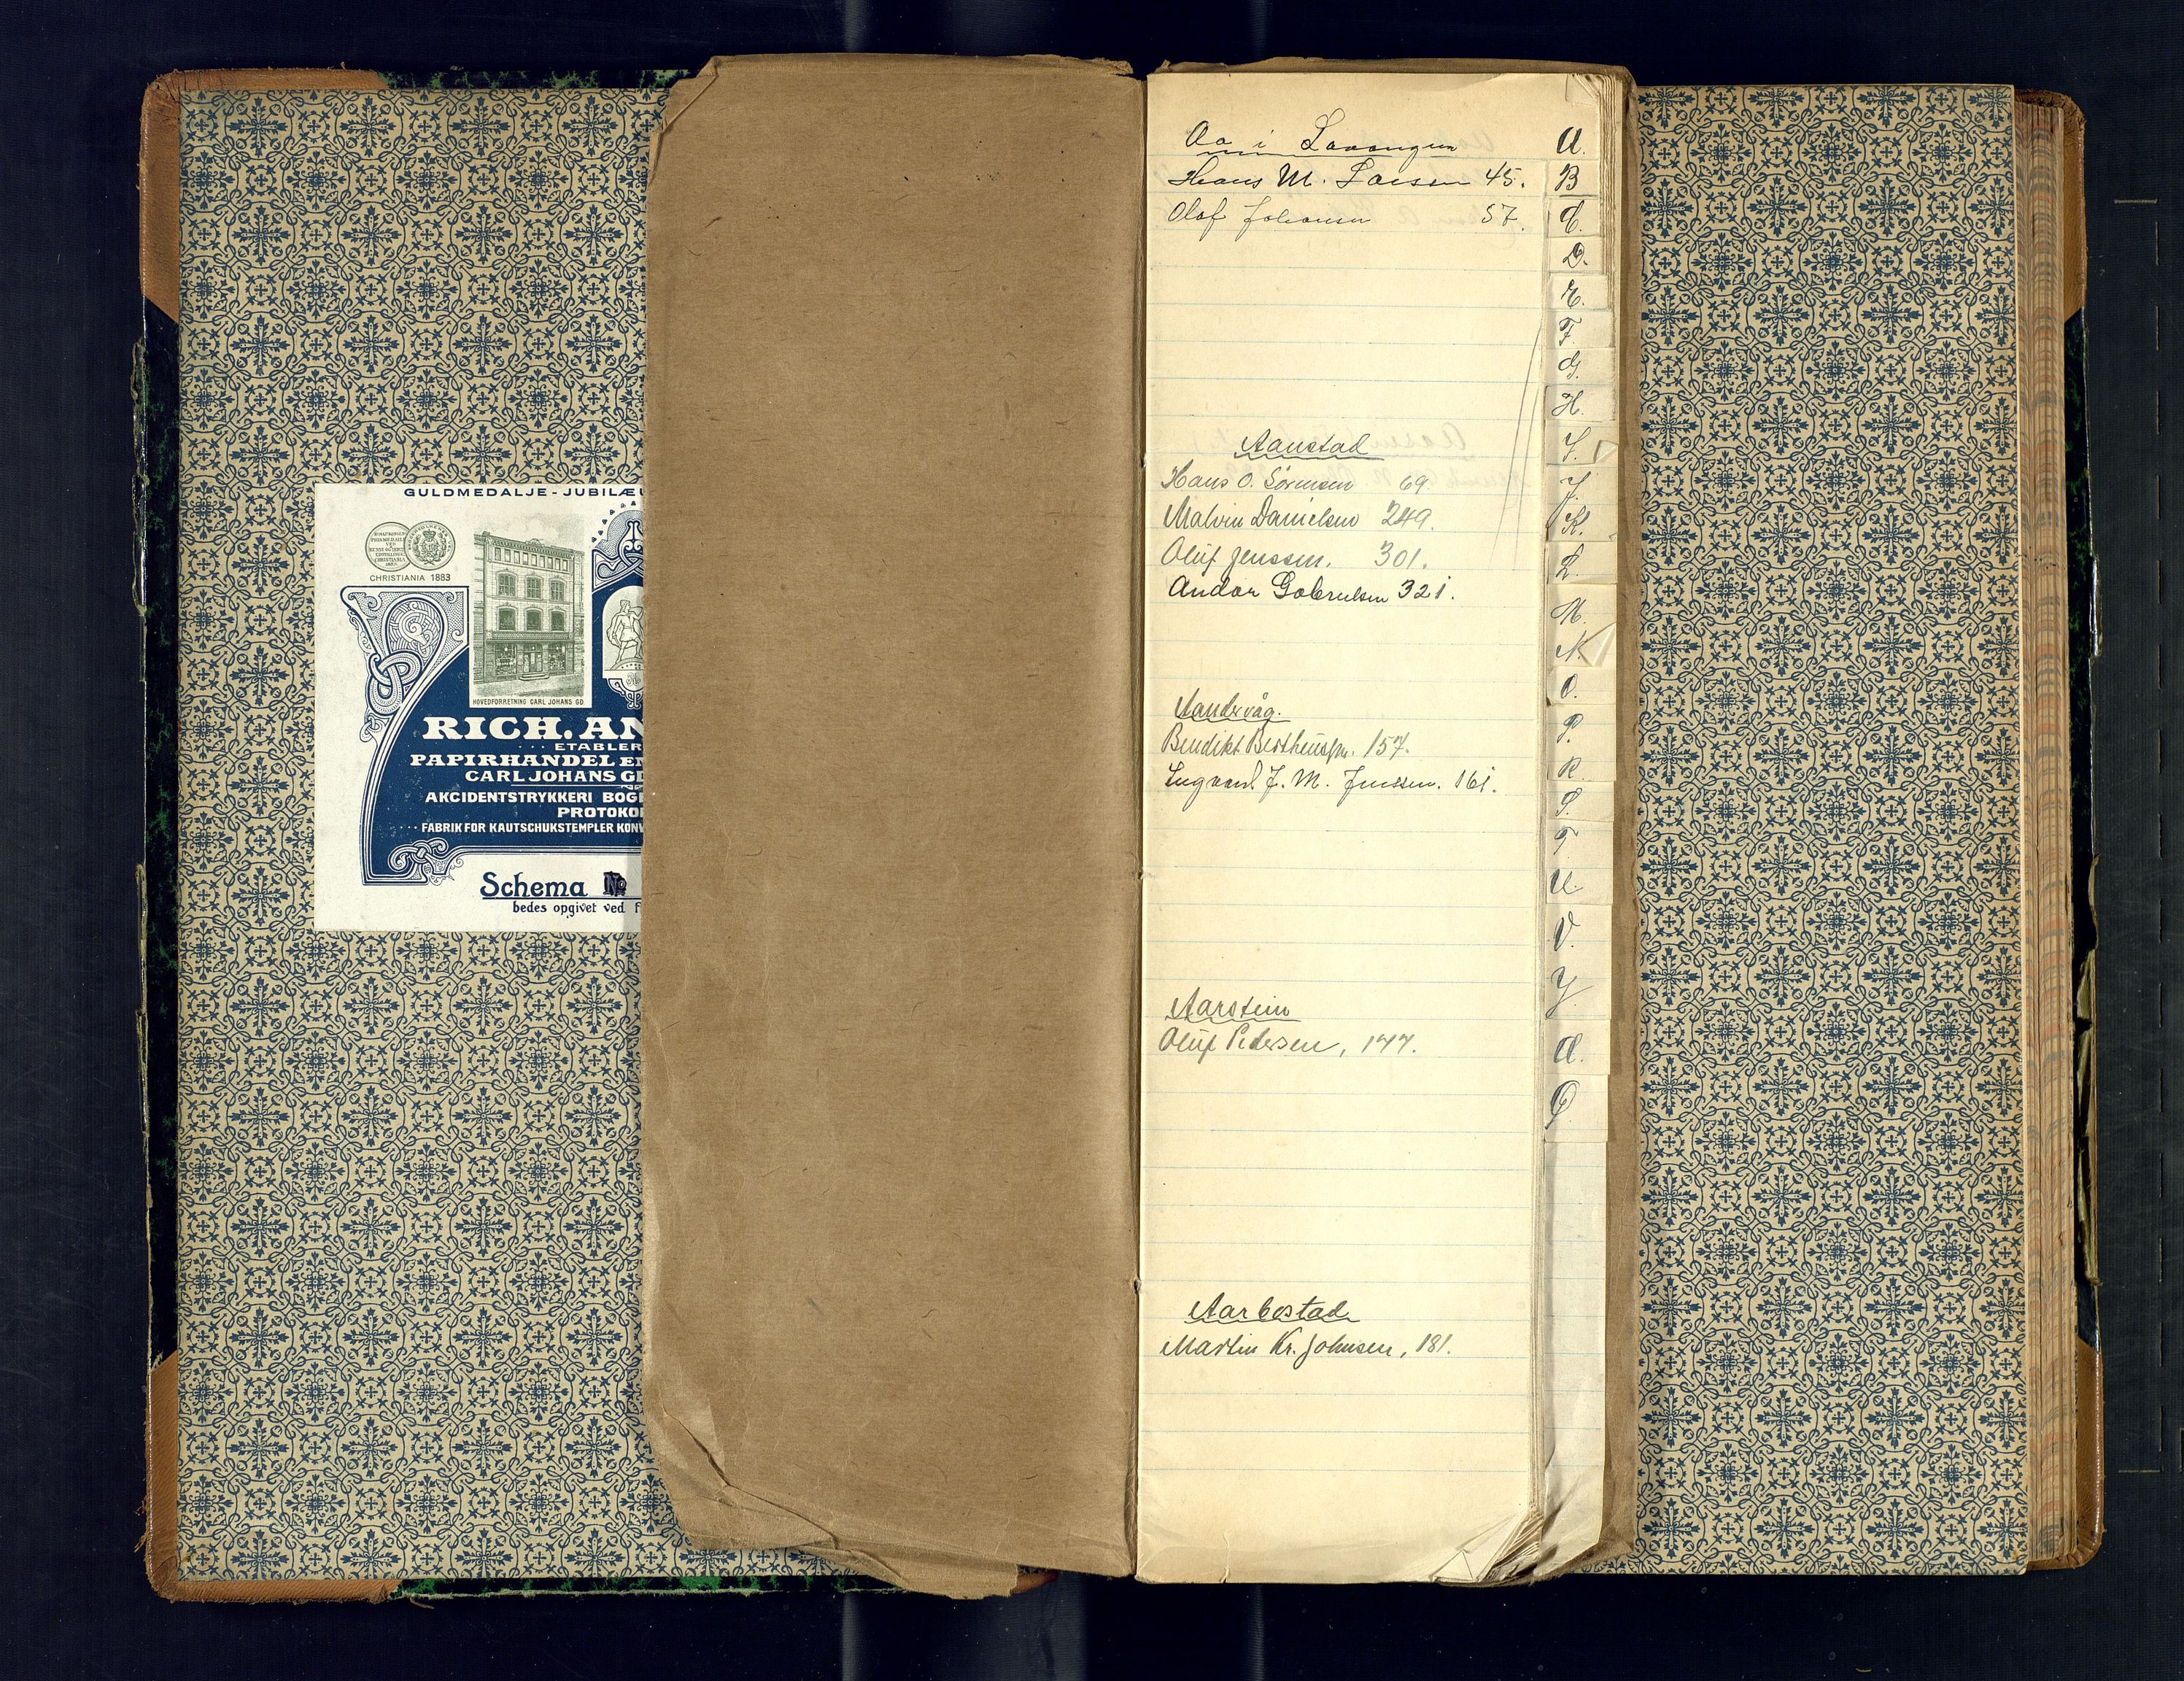 GULDMEDALJE - JUBILÆU
CHRISTIANIA 1883
HOVEDFORRETNING CARL JOHANS GD.
RICH. AN
ETABLER
PAPIRHANDEL EN
CARL JOHANS GD
AKCIDENTSTRYKKERI BOG
PROTOKO
FABRIK FOR KAUTSCHUKSTEMPLER KONV
Schema No
bedes opgivet ved f
Aa i Lavangen
Hans M. Larsen 45.
Olaf Johansen 57.
Aanstad
Hans O. Sörensen 69.
Malvin Danielsen 249.
Oluf Jenssen. 301.
Andor Gabrielsen 321.
Aandervåg.
Benedikt Bertheussen. 157.
Ingvard J. M. Jenssen. 161.
Aarstein
Oluf Pedersen, 177.
Aarbostad
Martin Kr. Johnsen, 181.
A.
B
C.
D.
E.
F.
G.
H.
I.
J.
K.
L.
M.
N.
O.
P.
R.
S.
T.
U.
V.
Y.
Æ.
Ø.